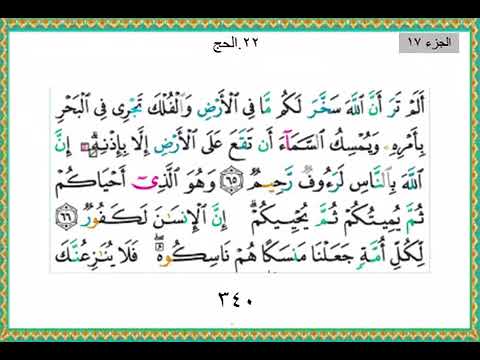 الجزء ١٧
٢٢.الحج
أَلَمْ تَرَ أَنَّ ٱللَّهَ سَخَّرَ لَكُم مَّا فِي ٱلْأَرْضِ وَٱلْفُلْكَ تَجْرِى فِي ٱلْبَحْرِ
بِأَمْرِهِۦ وَيُمْسِكُ ٱلسَّمَآءَ أَن تَقَعَ عَلَى ٱلْأَرْضِ إِلَّا بِإِذْنِهِۦٓ ۗ إِنَّ
ٱللَّهَ بِٱلنَّاسِ لَرَءُوفٌ رَّحِيمٌ ٦٥ وَهُوَ ٱلَّذِىٓ أَحْيَاكُمْ
ثُمَّ يُمِيتُكُمْ ثُمَّ يُحْيِيكُمْ ۗ إِنَّ ٱلْإِنسَـٰنَ لَكَفُورٌ ٦٦
لِكُلِّ أُمَّةٍ جَعَلْنَا مَنسَكًا هُمْ نَاسِكُوهُ ۖ فَلَا يُنَـٰزِعُنَّكَ
٣٤٠